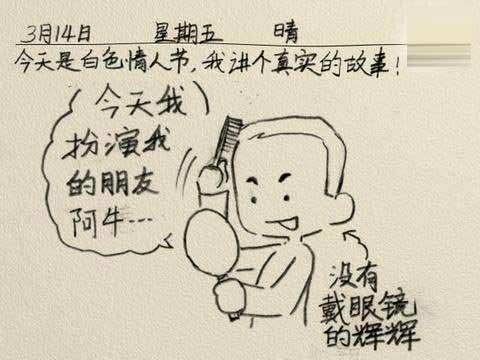 3月14日 星期五 晴
今天是白色情人节，我讲个真实的故事！
今天我
扮演我
的朋友
阿牛……
没有
戴眼镜
的辉辉